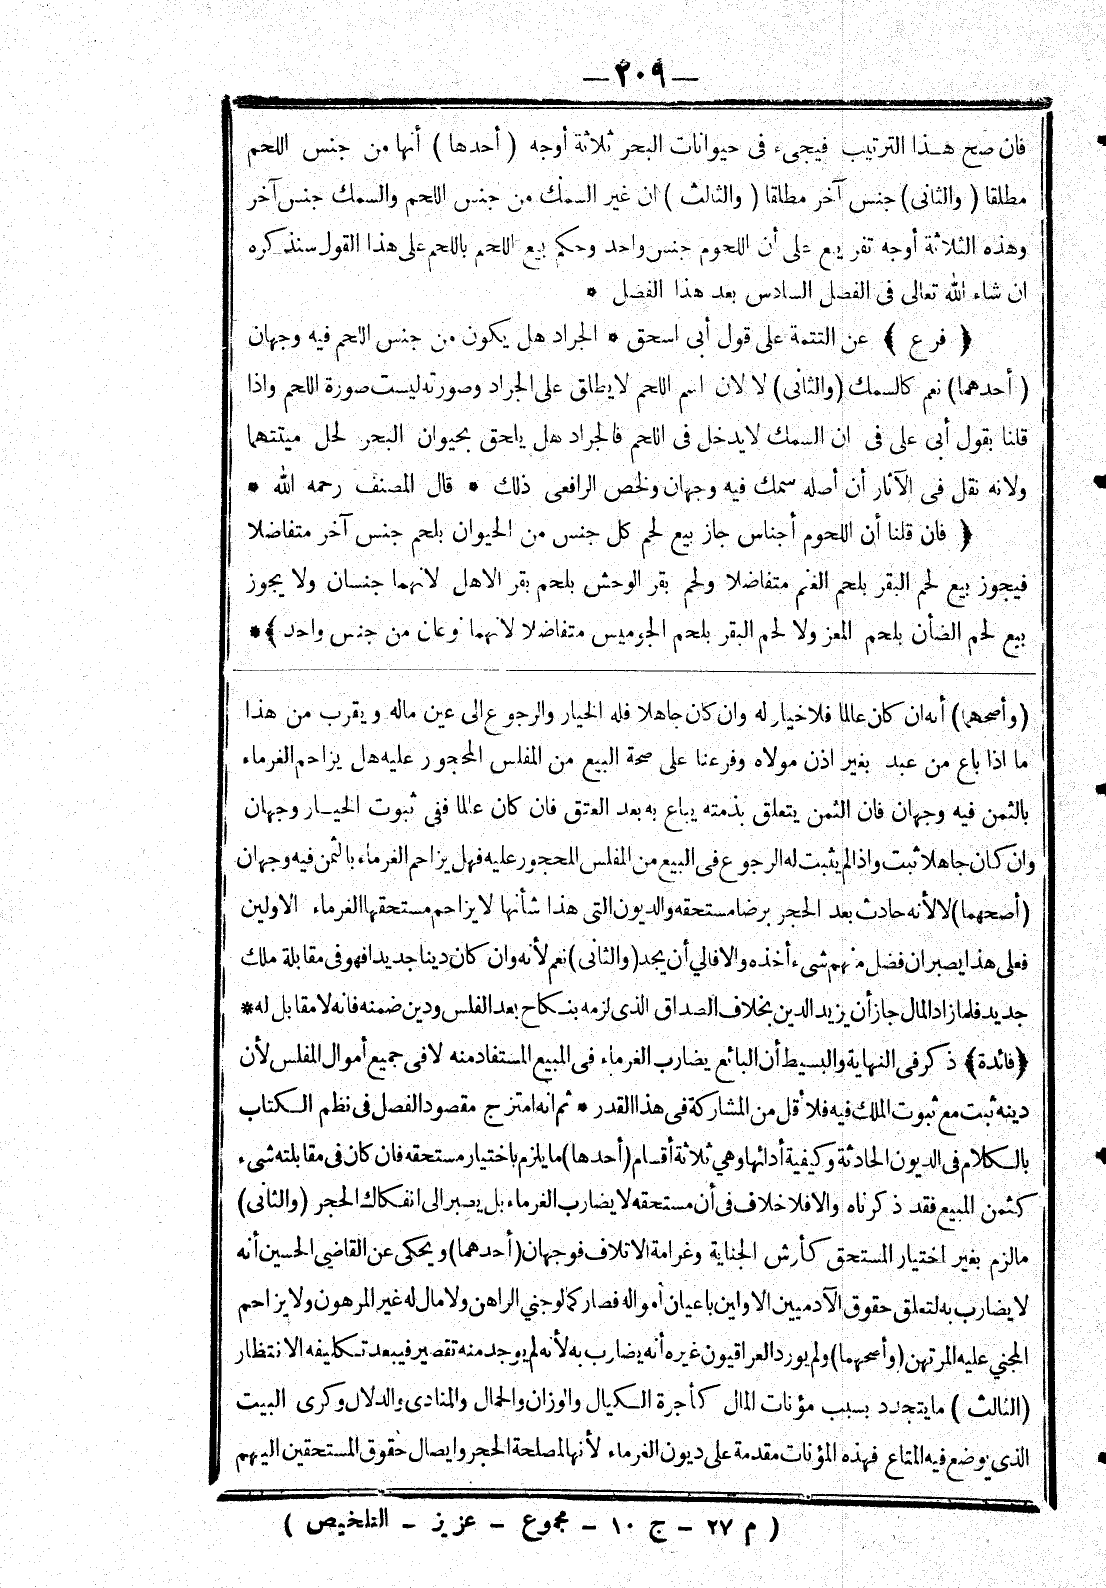 — ٢٠٩ —
فان صح هذا الترتيب فيجىء فى حيوانات البحر ثلاثة أوجه ( أحدها ) أنها من جنس اللحم
مطلقا ( والثانى ) جنس آخر مطلقا ( والثالث ) ان غير السمك من جنس اللحم والسمك جنس آخر
وهذه الثلاثة أوجه تفريع على أن اللحوم جنس واحد وحكم بيع اللحم باللحم على هذا القول سنذكره
ان شاء الله تعالى فى الفصل السادس بعد هذا الفصل *
﴿ فرع ﴾ عن التتمة على قول أبى اسحق * الجراد هل يكون من جنس اللحم فيه وجهان
( أحدهما ) نعم كالسمك ( والثانى ) لا لان اسم اللحم لا يطلق على الجراد وصورته ليست صورة اللحم واذا
قلنا بقول أبى على فى ان السمك لا يدخل فى اللحم فالجراد هل يلحق بحيوان البحر لحل ميتتهما
ولانه نقل فى الآثار أن أصله سمك فيه وجهان ولخص الرافعى ذلك * قال المصنف رحمه الله *
﴿ فان قلنا أن اللحوم أجناس جاز بيع لحم كل جنس من الحيوان بلحم جنس آخر متفاضلا
فيجوز بيع لحم البقر بلحم الغنم متفاضلا ولحم بقر الوحش بلحم بقر الاهل لانهما جنسان ولا يجوز
بيع لحم الضأن بلحم المعز ولا لحم البقر بلحم الجوميس متفاضلا لانهما نوعان من جنس واحد ﴾ *
( وأصحهما ) أنه ان كان عالما فلا خيار له وان كان جاهلا فله الخيار والرجوع الى عين ماله ويقرب من هذا
ما اذا باع من عبد بغير اذن مولاه وفرعنا على صحة البيع من المفلس المحجور عليه هل يزاحم الغرماء
بالثمن فيه وجهان فان الثمن يتعلق بذمته يباع به بعد العتق فان كان عالما ففى ثبوت الخيار وجهان
وان كان جاهلا ثبت واذا لم يثبت له الرجوع فى البيع من المفلس المحجور عليه فهل يزاحم الغرماء بالثمن فيه وجهان
( أصحهما ) لا لأنه حادث بعد الحجر برضا مستحقه والديون التى هذا شأنها لا يزاحم مستحقها الغرماء الاولين
فعلى هذا يصبر ان فضل منهم شىء أخذه والا فالي أن يجد ( والثانى ) نعم لأنه وان كان دينا جديدا فهو فى مقابلة ملك
جديد فلما زاد المال جاز أن يزيد الدين بخلاف الصداق الذى لزمه بنكاح بعد الفلس ودين ضمنه فانه لا مقابل له *
﴿ فائدة ﴾ ذكر فى النهاية والبسيط أن البائع يضارب الغرماء فى المبيع المستفاد منه لا فى جميع أموال المفلس لأن
دينه ثبت مع ثبوت الملك فيه فلا أقل من المشاركة فى هذا القدر * ثم انه امتزج مقصود الفصل فى نظم الكتاب
بالكلام فى الديون الحادثة وكيفية أدائها وهي ثلاثة أقسام ( أحدها ) ما يلزم باختيار مستحقه فان كان فى مقابلته شىء
كثمن المبيع فقد ذكرناه والا فلا خلاف فى أن مستحقه لا يضارب الغرماء بل يصبر الى انفكاك الحجر ( والثانى )
مالزم بغير اختيار المستحق كأرش الجناية وغرامة الاتلاف فوجهان ( أحدهما ) ويحكى عن القاضي الحسين أنه
لا يضارب به لتعلق حقوق الآدميين الاولين باعيان أمواله فصار كما لو جني الراهن ولا مال له غير المرهون ولا يزاحم
المجني عليه المرتهن ( وأصحهما ) ولم يورد العراقيون غيره أنه يضارب به لأنه لم يوجد منه تقصير فيبعد تكليفه الانتظار
( الثالث ) ما يتجدد بسبب مؤنات المال كأجرة الكيال والوزان والحمال والمنادى والدلال وكرى البيت
الذى يوضع فيه المتاع فهذه المؤنات مقدمة على ديون الغرماء لأنها لمصلحة الحجر وايصال حقوق المستحقين اليهم
( م ٢٧ – ج ١٠ – مجموع – عزيز – التلخيص )